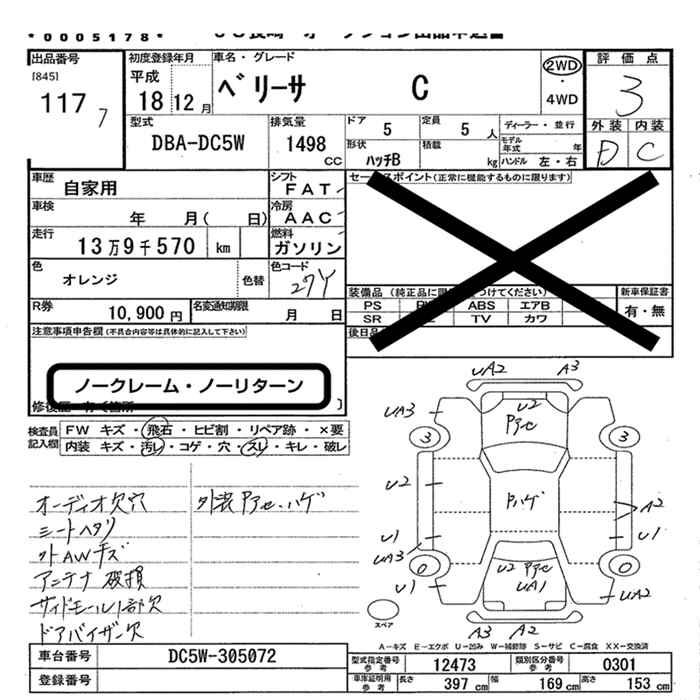 *0005178*
出品番号
[845]
117 7
初度登録年月
平成
18 12 月
車名・グレード
ベリーサ C
2WD
・
4WD
評価点
3
外装 内装
D C
型式
DBA-DC5W
排気量
1498
CC
ドア 5
定員 5 人
形状 ハッチB
積載 kg
ディーラー・並行
モデル年式 年
ハンドル 左・右
車歴
自家用
シフト
FAT
車検
年 月( 日)
冷房
AAC
走行
13万9千570 km
燃料
ガソリン
色
オレンジ
色替
色コード
27Y
R券
10,900 円
名変通知期限
月 日
セールスポイント(正常に機能するものに限ります)
装備品 (純正品に限 つけてください)
PS ABS エアB
SR TV カワ
新車保証書
有・無
後日品
注意事項申告欄(不具合内容等は具体的に記入して下さい)
ノークレーム・ノーリターン
検査員記入欄
FW キズ・飛石・ヒビ割・リペア跡・×要
内装 キズ・汚レ・コゲ・穴・スレ・キレ・破レ
オーディオ欠穴
シートヘタリ
外AWキズ
アンテナ破損
サイドモール1部欠
ドアバイザー欠
外装アセ・ハゲ
UA2 A3
UA3
U2
Pアセ
3 3
U2
Pハゲ
A2
U1 U1
UA3
0 0
U2 Pアセ
UA1
U1
UA2
A3 A2
スペア
A-キズ E-エクボ U-凹み W-補修跡 S-サビ C-腐食 XX-交換済
車台番号
DC5W-305072
登録番号
型式指定番号 参考 12473
類別区分番号 参考 0301
車庫証明用 参考
長さ 397 cm
幅 169 cm
高さ 153 cm